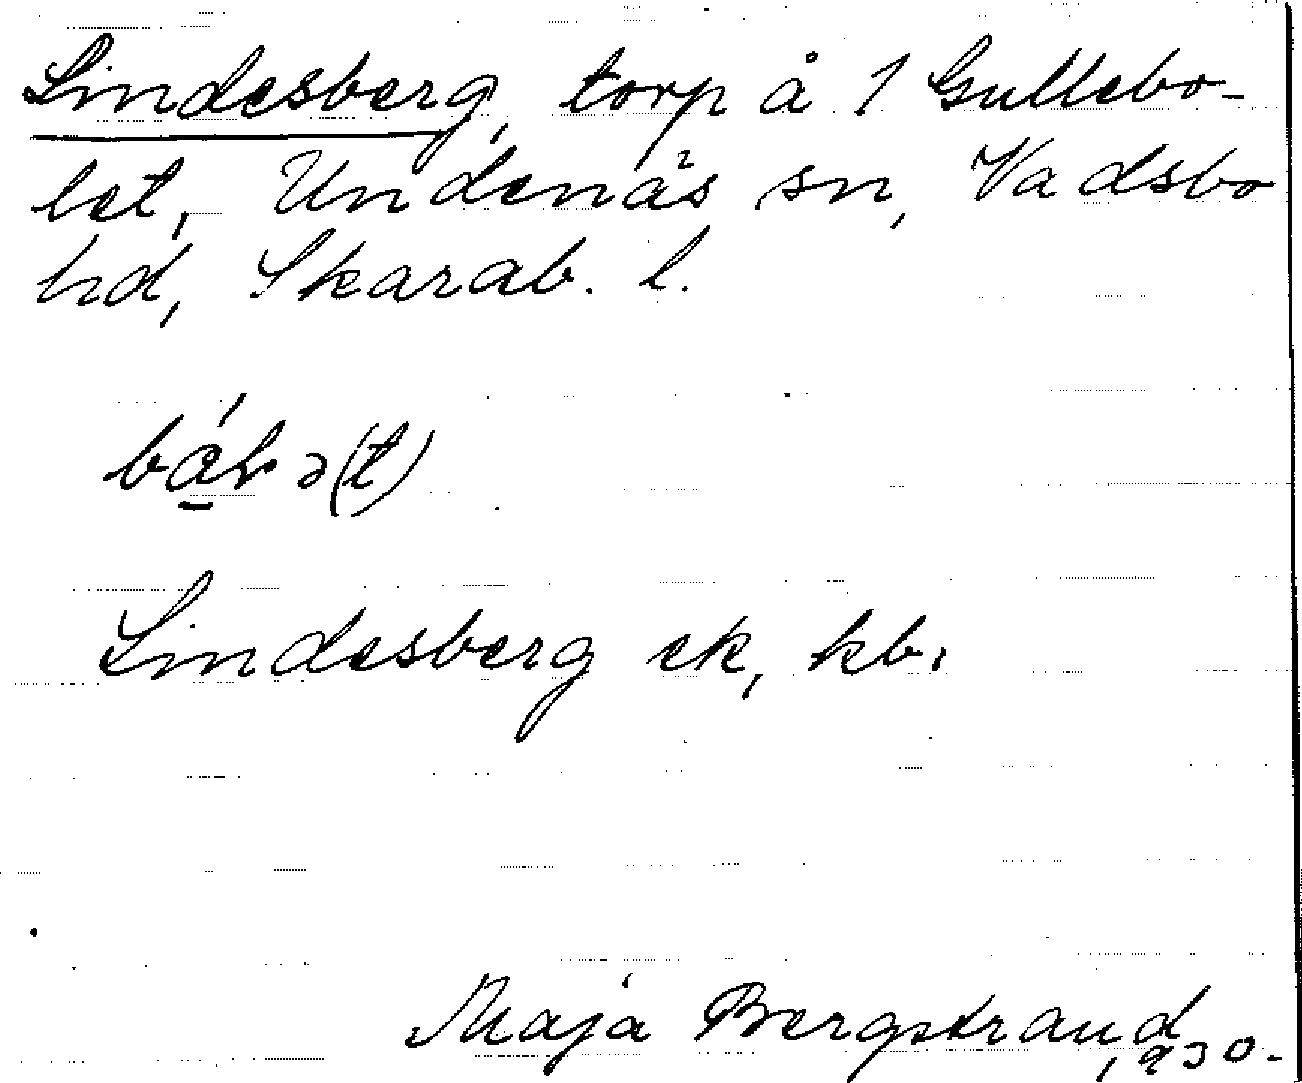 Lindesberg, torp å 1 Gullebo-
let, Undenäs sn, Vadsbo
hd, Skarab. l.
Lindesberg ek, kb.
Maja Bergstrand, 1930.